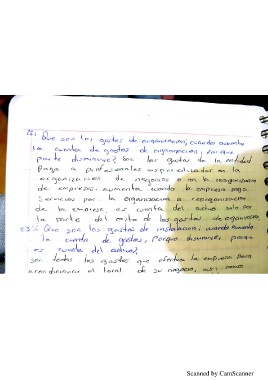 22: Que son los gastos de organizacion; cuando aumenta
la cuenta de gastos de organizacion, por que
parte disminuye? Son los gastos de la entidad
paga a profesionales especializados en la
organizacion de negocios o en la reorganizacion
de empresas. aumenta cuando la empresa paga
servicios por la organizacion o reorganizacion
de la empresa, es cuenta del activo solo por
la parte del exito de los gastos de organizacion
23: Que son los gastos de instalacion; cuando aumenta
la cuenta de gastos, Porque disminuye, porque
es cuenta del activo;
son todos los gastos que efectua la empresa para
acondicionar el local de su negocio, asi como
Scanned by CamScanner